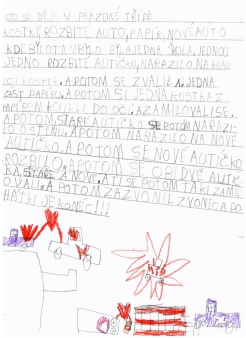 CO SE DĚJE V PRÁZDNÉ TŘÍDĚ
KOSTKY, ROZBITÉ AUTO, PAPÍR, NOVÉ AUTO
KDE BYLO TAM BYLO BYLA JEDNA ŠKOLA, JEDNOU
JEDNO ROZBITÉ AUTÍČKO, NARAZILO NA
KOSTEK, A POTOM SE ZVALILA, JEDNA
ČÁST PAPÍRU, A POTOM SI JEDNA KOSTKA Z
PAPÍREM KOUKLI DO OČÍ, A ZAMILOVALI SE.
A POTOM STARÉ AUTÍČKO SE POTOM NARAZI-
LO O STĚNU, A POTOM NARAZILO NA NOVÉ
AUTÍČKO, A POTOM SE NOVÉ AUTÍČKO
ROZBILO, A POTOM SE OBĚ DVĚ AUTÍČ-
KA STARÉ A NOVÉ, A TI SE POTOM TAKY ZAMIL-
OVALI, A POTOM ZAZVONIL ZVONEC A PO-
HÁDKY JE KONEC!!!